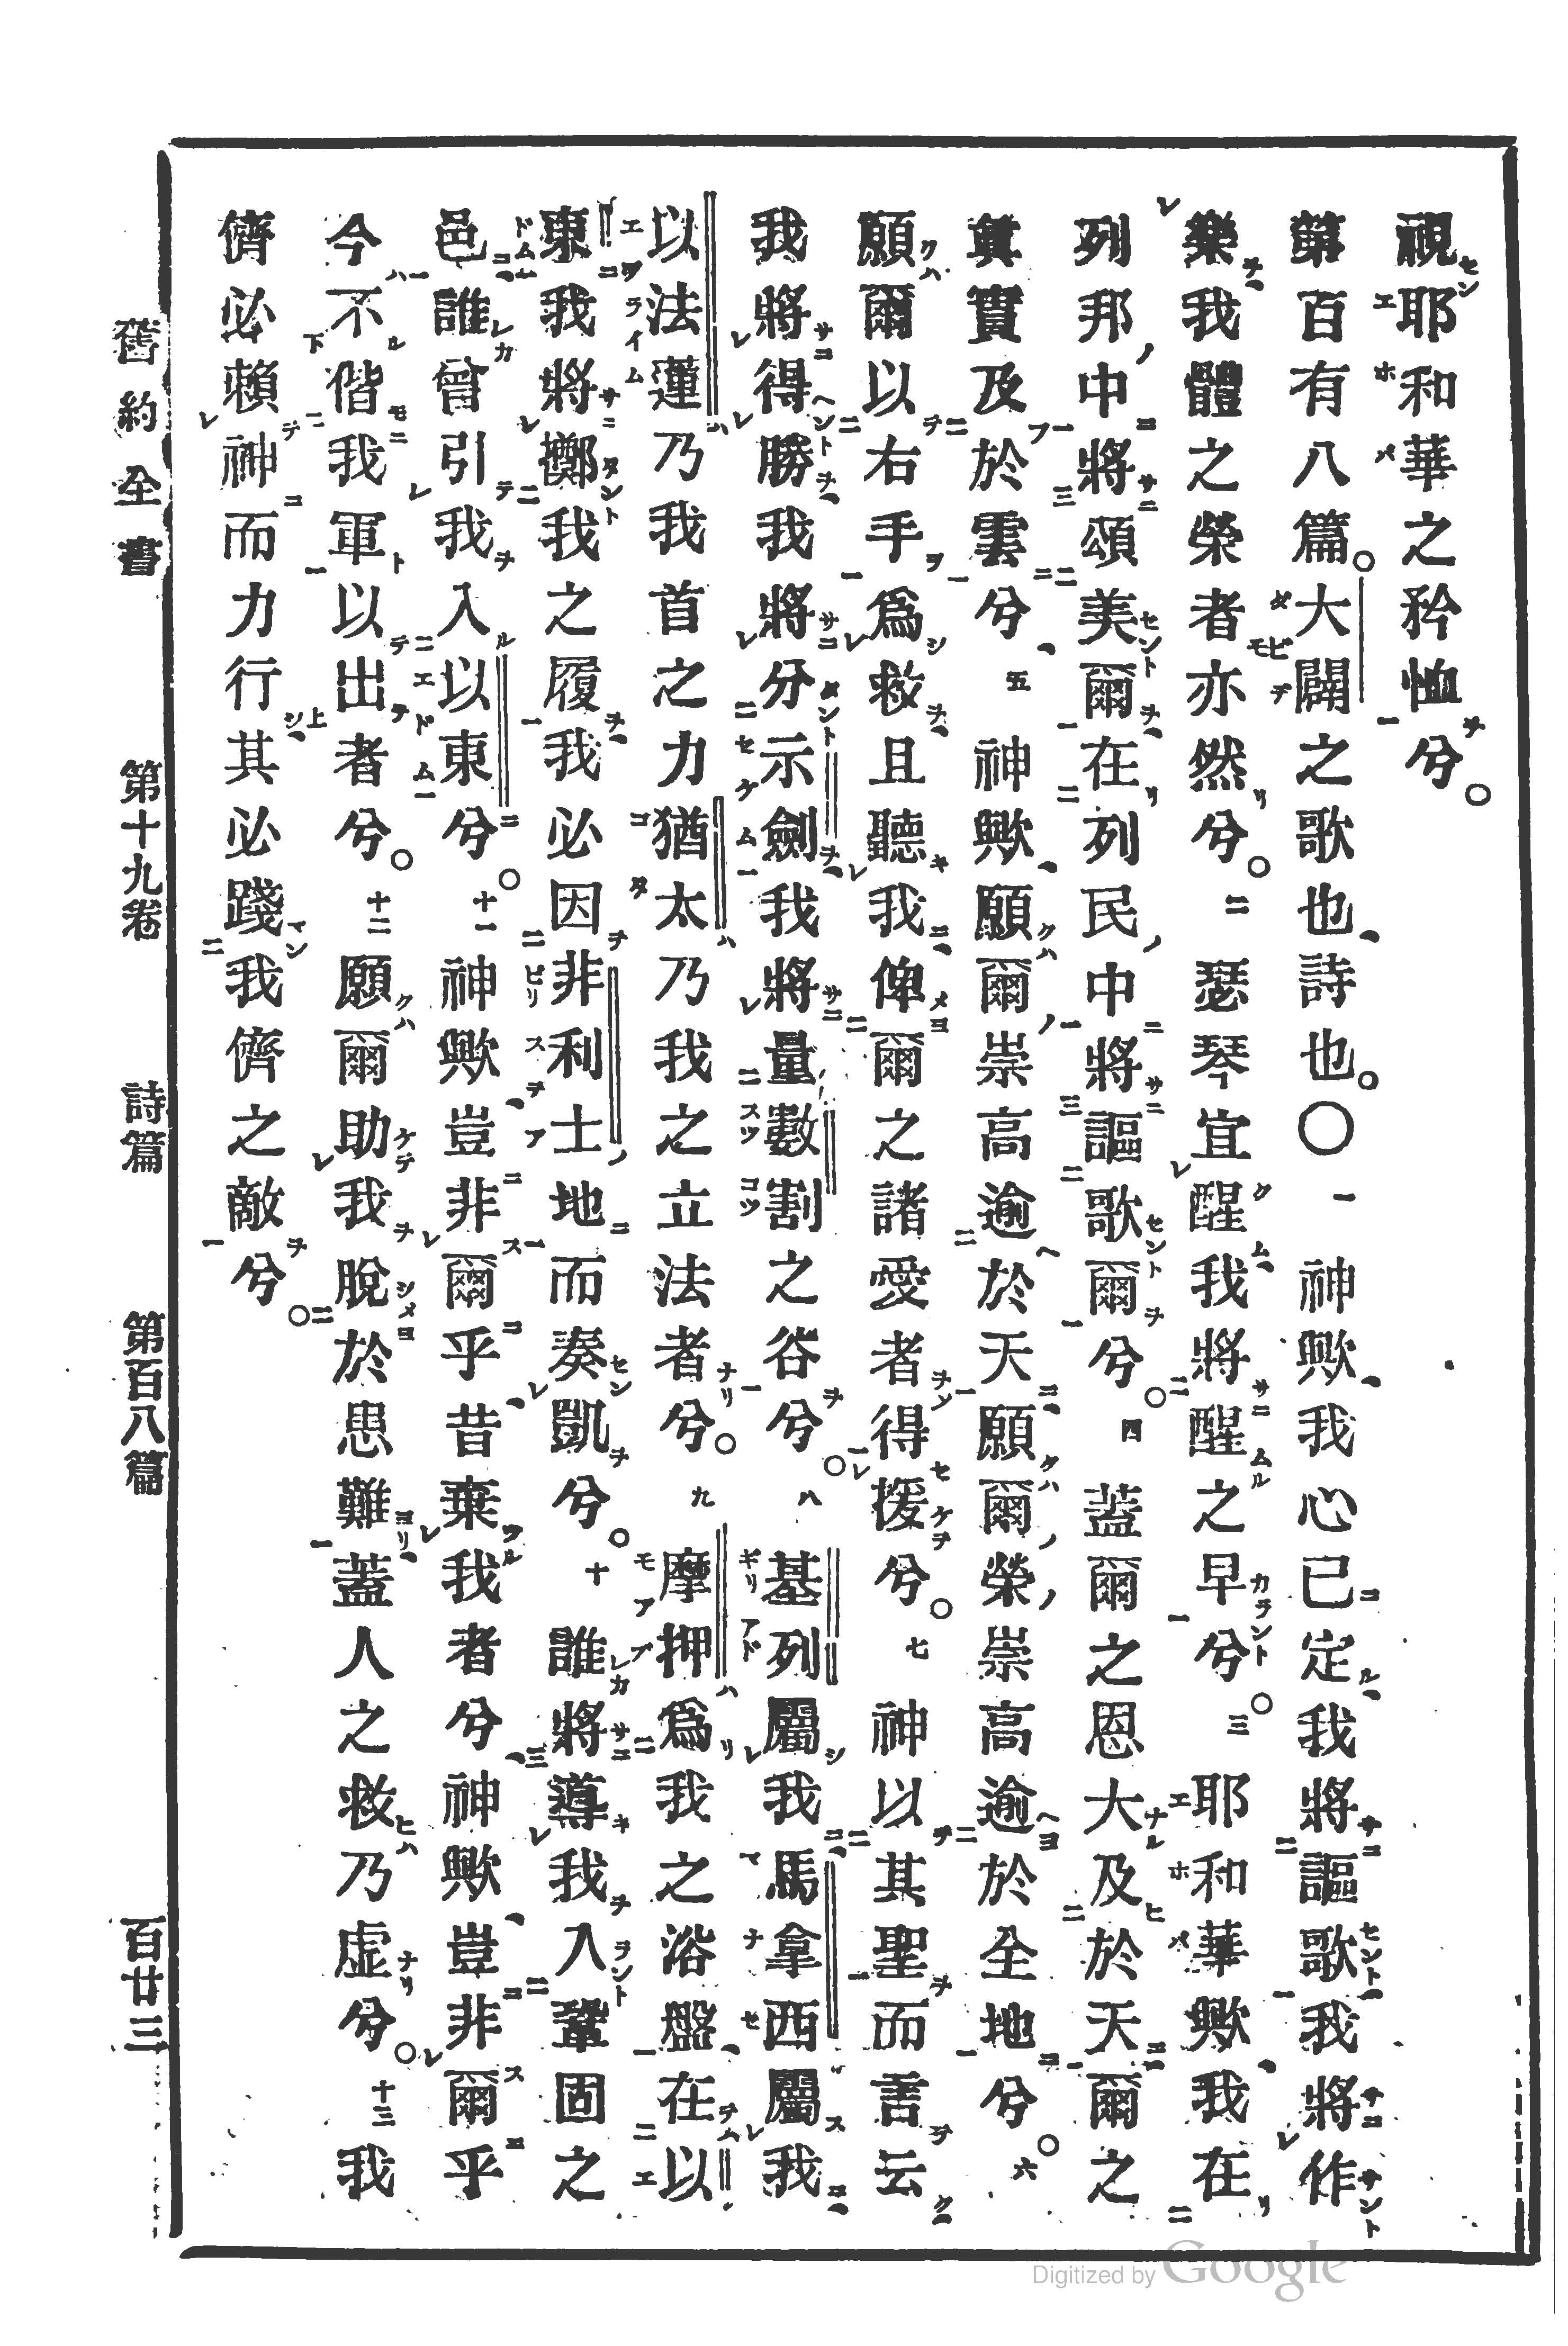 視耶和華之矜恤兮。
第百有八篇。大闢之歌也、詩也。〇一 神歟、我心已定、我將謳歌、我將作
樂、我體之榮者亦然兮。二 瑟琴宜醒、我將醒之早兮。三 耶和華歟、我在
列邦中將頌美爾、在列民中將謳歌爾兮。四 蓋爾之恩大及於天、爾之
眞實及於雲兮、五 神歟、願爾崇高逾於天、願爾榮崇高逾於全地兮。六
願爾以右手爲救、且聽我、俾爾之諸愛者得援兮。七 神以其聖而言云、
我將得勝、我將分示劍、我將量數割之谷兮。八 基列屬我、馬拿西屬我、
以法蓮乃我首之力猶太乃我之立法者兮。九 摩押爲我之浴盤、在以
東、我將擲我之履、我必因非利士地而奏凱兮。十 誰將導我入鞏固之
邑、誰曾引我入以東兮。十一 神歟、豈非爾乎、昔棄我者兮、神歟、豈非爾乎
今不偕我軍以出者兮。十二 願爾助我脫於患難、蓋人之救乃虛兮。十三 我
儕必賴神而力行、其必踐我儕之敵兮。
舊約全書 第十九卷 詩篇 第百八篇 百廿三
Digitized by Google